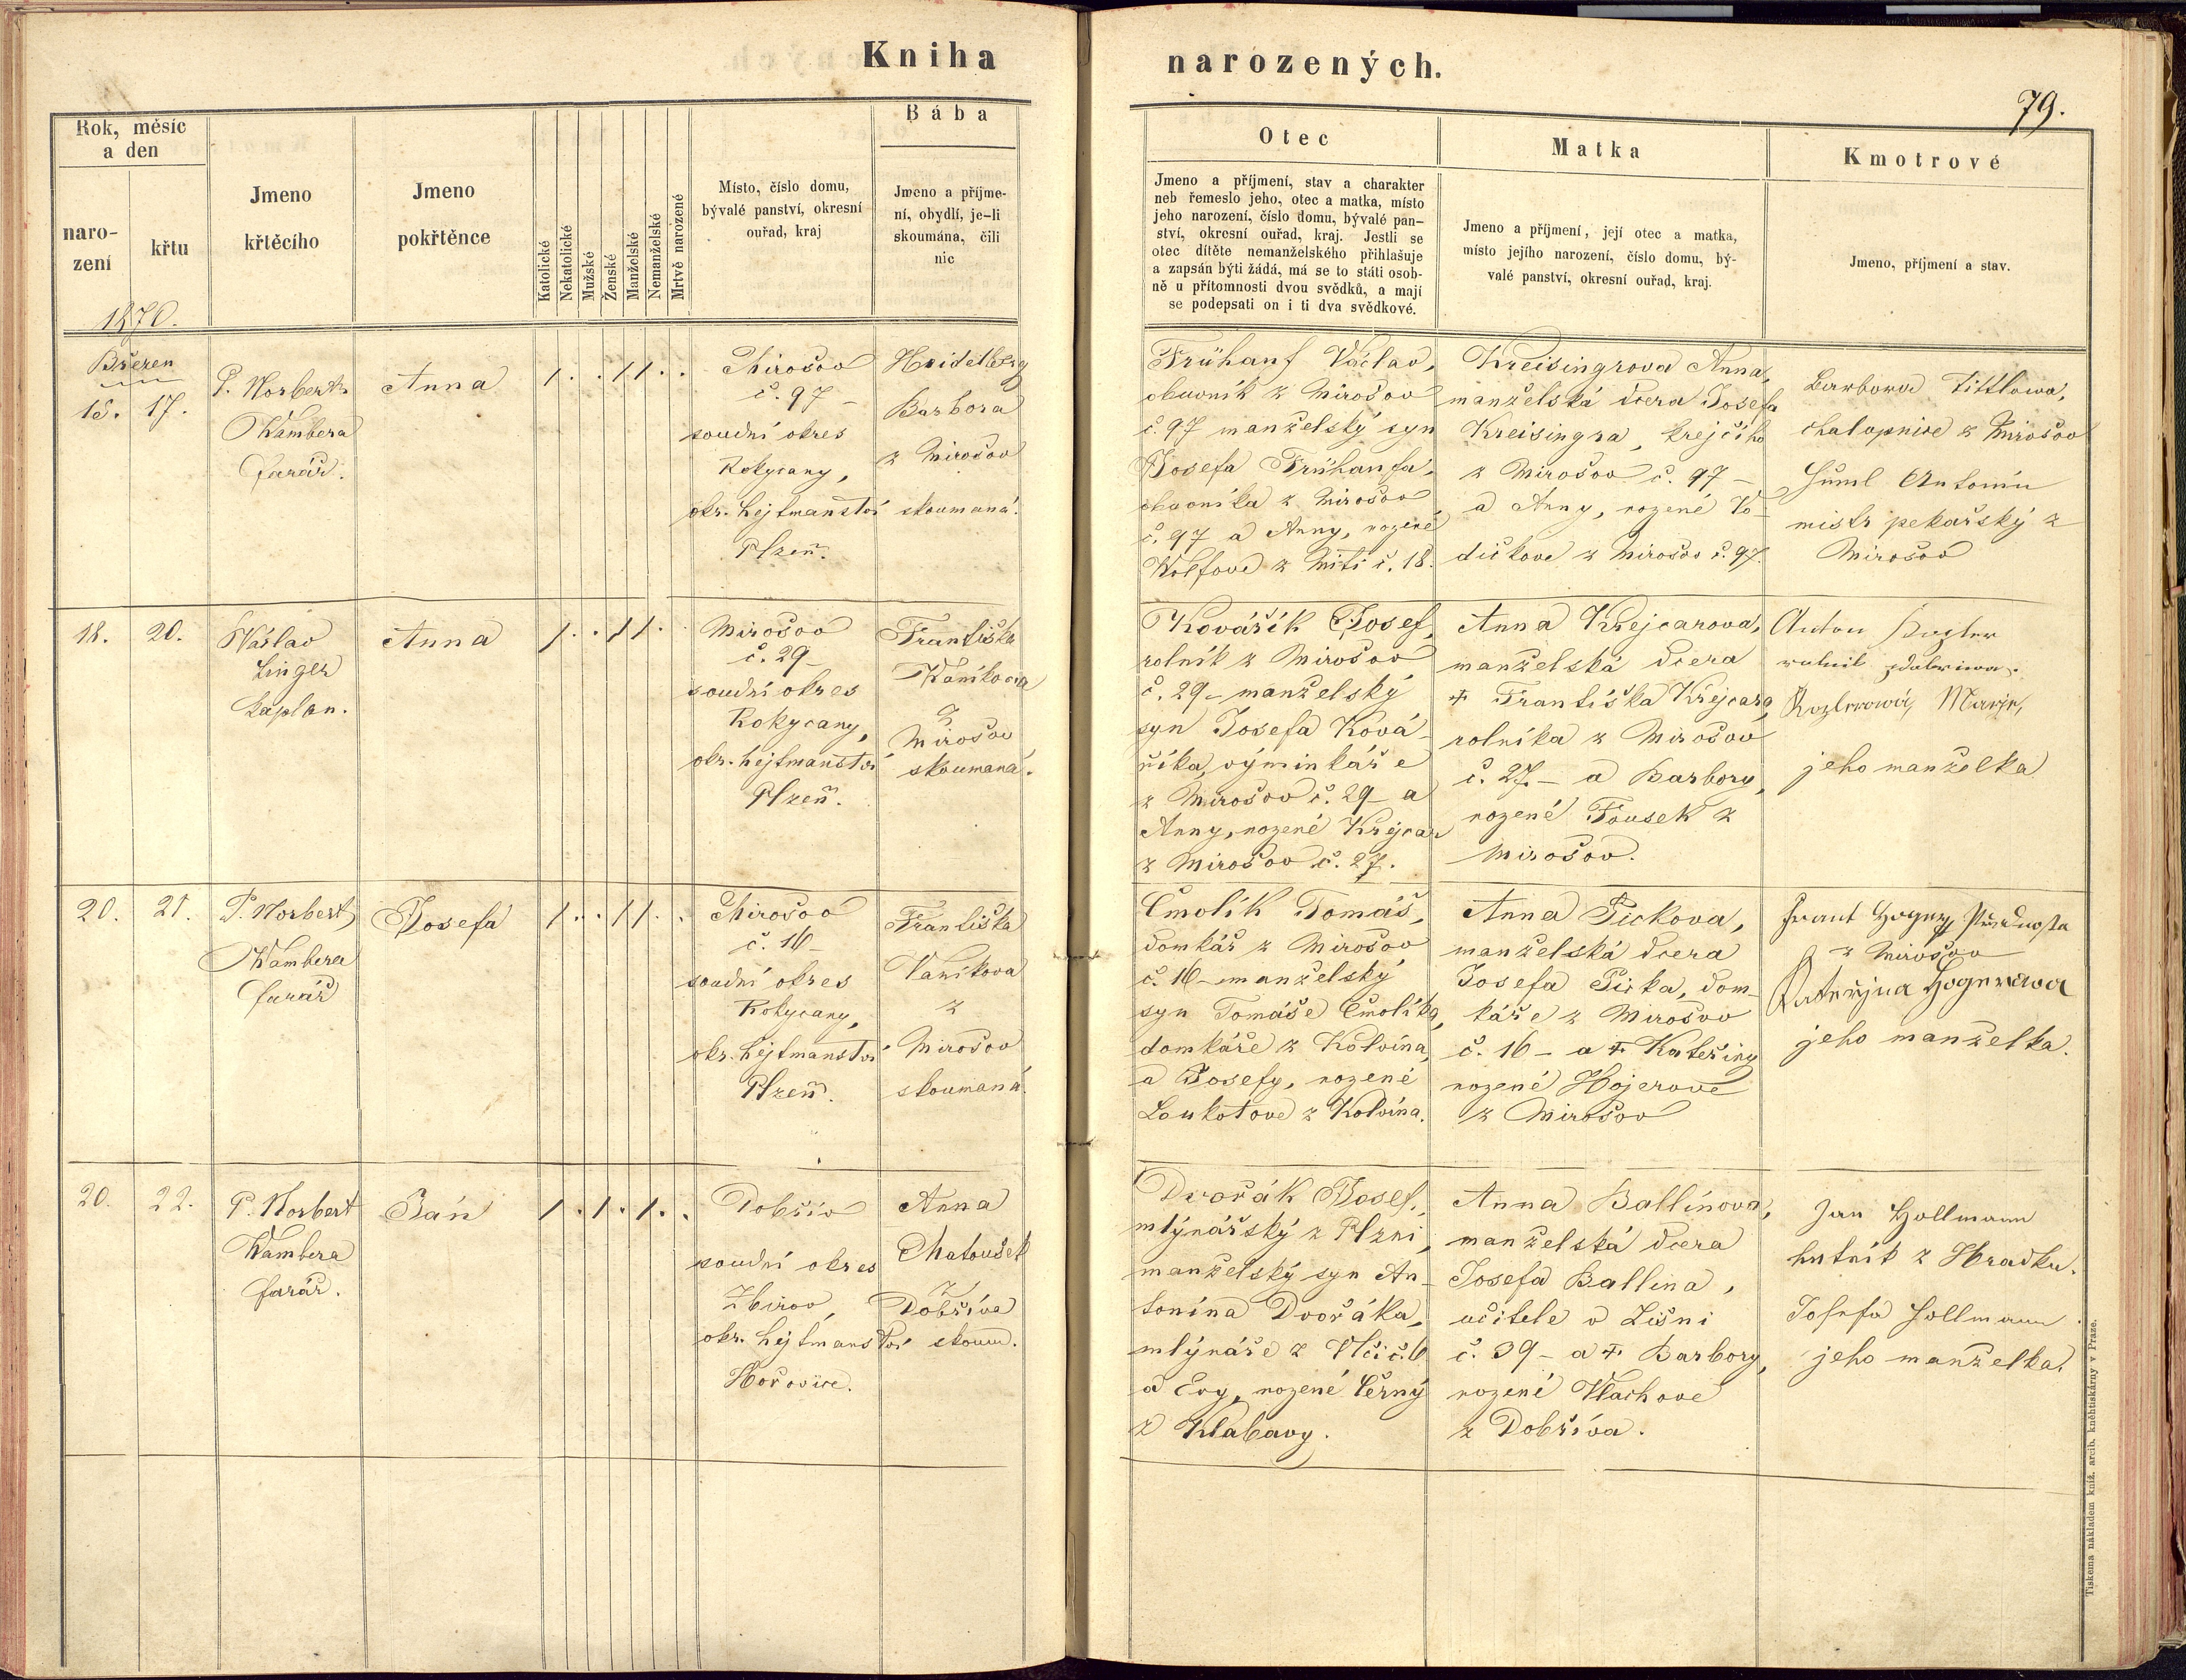 Kniha
narozených.
79.
Rok, měsíc
a den
naro-
zení
křtu
1870.
Jmeno
křtěcího
Jmeno
pokřtěnce
Katolické
Nekatolické
Mužské
Ženské
Manželské
Nemanželské
Mrtvě narozené
Místo, číslo domu,
bývalé panství, okresní
ouřad, kraj
Bába
Jmeno a příjme-
ní, obydlí, je-li
skoumána, čili
nic
Otec
Jmeno a příjmení, stav a charakter
neb řemeslo jeho, otec a matka, místo
jeho narození, číslo domu, bývalé pan-
ství, okresní ouřad, kraj. Jestli se
otec dítěte nemanželského přihlašuje
a zapsán býti žádá, má se to státi osob-
ně u přítomnosti dvou svědků, a mají
se podepsati on i ti dva svědkové.
Matka
Jmeno a příjmení, její otec a matka,
místo jejího narození, číslo domu, bý-
valé panství, okresní ouřad, kraj.
Kmotrové
Jmeno, příjmení a stav.
Březen
17.
P. Norbert
Wambera
farář.
Anna
1 . . 1 1 . .
Mirošov
č. 97 –
soudní okres
Rokycany,
okr. hejtmanství
Plzeň.
Heidelberg
Barbora
z Mirošov
skoumaná.
Frühauf Václav,
obuvník z Mirošov
č. 97 manželský syn
Josefa Frühaufa,
obuvníka z Mirošov
č. 97 a Anny, rozené
Wolfove z Mití č. 18.
Kreisingrova Anna,
manželská dcera Josefa
Kreisingra, krejčího
z Mirošov č. 97 –
a Anny, rozené Vo-
dičkove z Mirošov č. 97.
Barbora Tittlowa,
chalupnice z Mirošov
Antonín
mistr pekařský z
Mirošov
18.
20.
Wáslav
Linger
kaplan.
Anna
1 . . 1 1 .
Mirošov
č. 29 –
soudní okres
Rokycany,
okr. hejtmanství
Plzeň.
Františka
Waníkova
z
Mirošov
skoumaná.
Kovářík Josef,
rolník z Mirošov
č. 29 – manželský
syn Josefa Ková-
říka, výminkáře
z Mirošov č. 29 – a
Anny, rozené Krejcar
z Mirošov č. 27.
Anna Krejcarova,
manželská dcera
+ Františka Krejcara,
rolníka z Mirošov
č. 27 – a Barbory,
rozené Fousek z
Mirošov.
Anton
Marie,
jeho manželka
20.
21.
P. Norbert
Wambera
farář
Josefa
1 . . 1 1 . .
Mirošov
č. 16 –
soudní okres
Rokycany,
okr. hejtmanství
Plzeň.
Františka
Vaníkova
z
Mirošov
skoumaná.
Cmolík Tomáš,
domkář z Mirošov
č. 16 – manželský
syn Tomáše Cmolíka,
domkáře z Kolvína,
a Josefy, rozené
Loukotove z Kolvína.
Anna Pickova,
manželská dcera
Josefa Picka, dom-
káře z Mirošov
č. 16 – a + Kateřiny
rozené Hojerove
z Mirošov
z Mirošov
jeho manželka.
20.
22.
P. Norbert
Wambera
farář.
Ján
1 . 1 . 1 . .
Dobřív
soudní okres
Zbirov,
okr. hejtmanství
Hořovice.
Anna
Matoušek
z
Dobříva
skoum.
Dvořák Josef,
mlýnářský z Plzni,
manželský syn An-
tonína Dvořáka,
mlýnáře z Vlčič. 6
a Evy, rozené Černý
z Klabavy.
Anna Ballínova,
manželská dcera
Josefa Ballina,
učitele v Lišni
č. 39 – a + Barbory,
rozené Vlachove
z Dobříva.
Jan Hollmann
hutník z Hradku.
Josefa Hollmann
jeho manželka.
Tiskema nákladem kníž. arcib. kněhtiskárny v Praze.